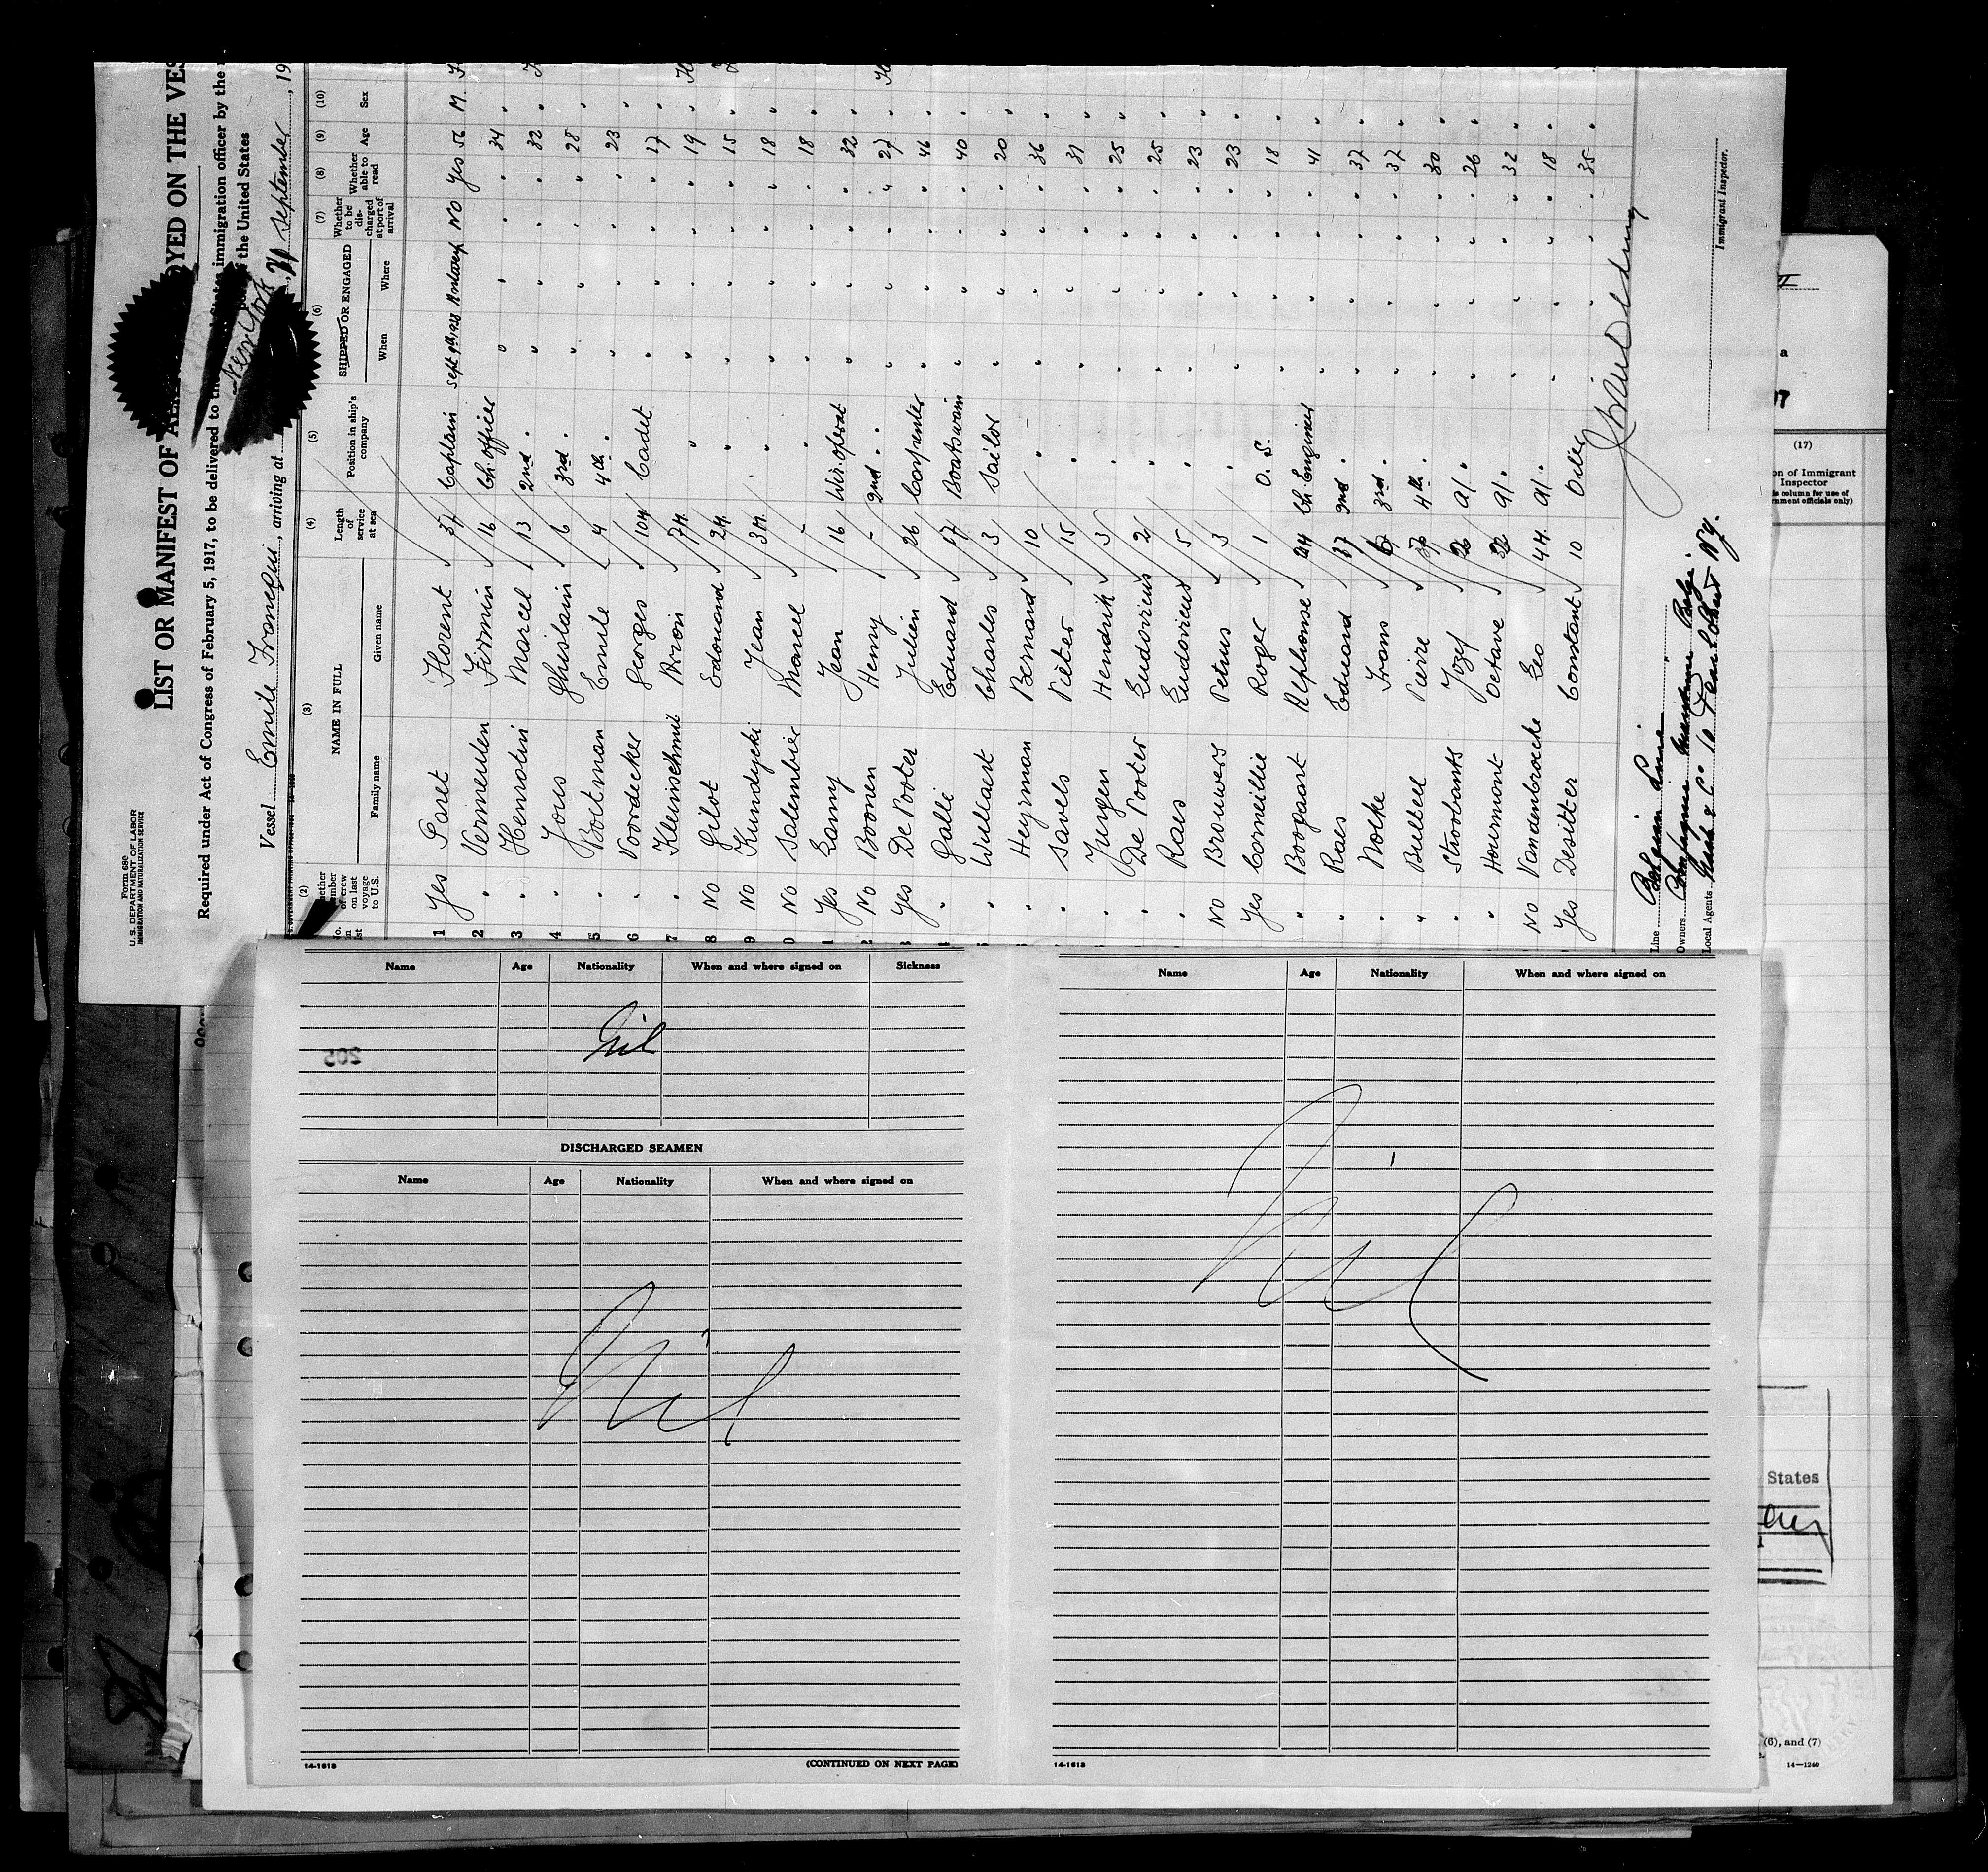 Form 680
U.S. DEPARTMENT OF LABOR
IMMIGRATION AND NATURALIZATION SERVICE
LIST OR MANIFEST OF OYED ON THE VES
Required under Act of Congress of February 5, 1917, to be delivered to the immigration officer by the
of the United States
Vessel Emile Francqui, arriving at New York, September, 19
(2) (3) (4) (5) (6) (7) (8) (9) (10)
NAME IN FULL
Family name Given name
Length of service at sea
Position in ship's company
SHIPPED OR ENGAGED
When Where
Whether to be discharged at port of arrival
Whether able to read
Age
Sex
1 Yes Paret Florent 37 Captain Sept 9th 1928 Antwerp No Yes 56 M.
2 " Vermeulen Firmin 16 Ch. officer " " " " 34 "
3 " Henrotin Marcel 13 2nd " " " " " 32 "
4 " Joris Ghislain 6 3rd " " " " " 28 "
5 " Boltman Emile 4 4th " " " " " 23 "
6 " Voordecker Georges 10M Cadet " " " " 17 "
7 " Kleinschmit Arion 7M. " " " " " 19 "
8 No Gilot Edouard 2M. " " " " " 15 "
9 No Kundycki Jean 3M. " " " " " 18 "
0 No Salembier Marcel - " " " " " 18 "
1 Yes Lanny Jean 16 Wir. operat " " " " 32 "
2 No Boonen Henry - 2nd " " " " " 27 "
3 Yes De Pooter Julien 26 Carpenter " " " " 46 "
4 " Galle Eduard 27 Boatswain " " " " 40 "
5 " Wullaert Charles 3 Sailor " " " " 20 "
" Heyrman Bernard 10 " " " " " 36 "
" Savels Pieter 15 " " " " " 31 "
" Jurgen Hendrik 3 " " " " " 25 "
" De Pooter Ludovicus 2 " " " " " 25 "
" Raes Ludovicus 5 " " " " " 23 "
No Brouwers Petrus 3 " " " " " 23 "
Yes Corneillie Roger 1 O. S. " " " " 18 "
" Boogaart Alphonse Ch. Engineer " " " " 41 "
" Raes Eduard 2nd " " " " " 37 "
" Nolke Frans 3rd " " " " " 37 "
" Bulteel Pierre 4th " " " " " 30 "
" Stroobants Jozef " " " " 26 "
" Hourmont Octave " " " " 32 "
No Vandenbroecke Leo 4M. " " " " 18 "
Yes Desitter Constant 10 Oiler " " " " 35 "
Line Belgian Line
Owners Compagnie Maritime Belge
Local Agents
Immigrant Inspector.
Name Age Nationality When and where signed on Sickness
Nil
205
DISCHARGED SEAMEN
Name Age Nationality When and where signed on
Nil
14-1613 (CONTINUED ON NEXT PAGE)
Name Age Nationality When and where signed on
Nil
14-1613
(17)
on of Immigrant
Inspector
column for use of
nment officials only)
States
(6), and (7)
14—1240